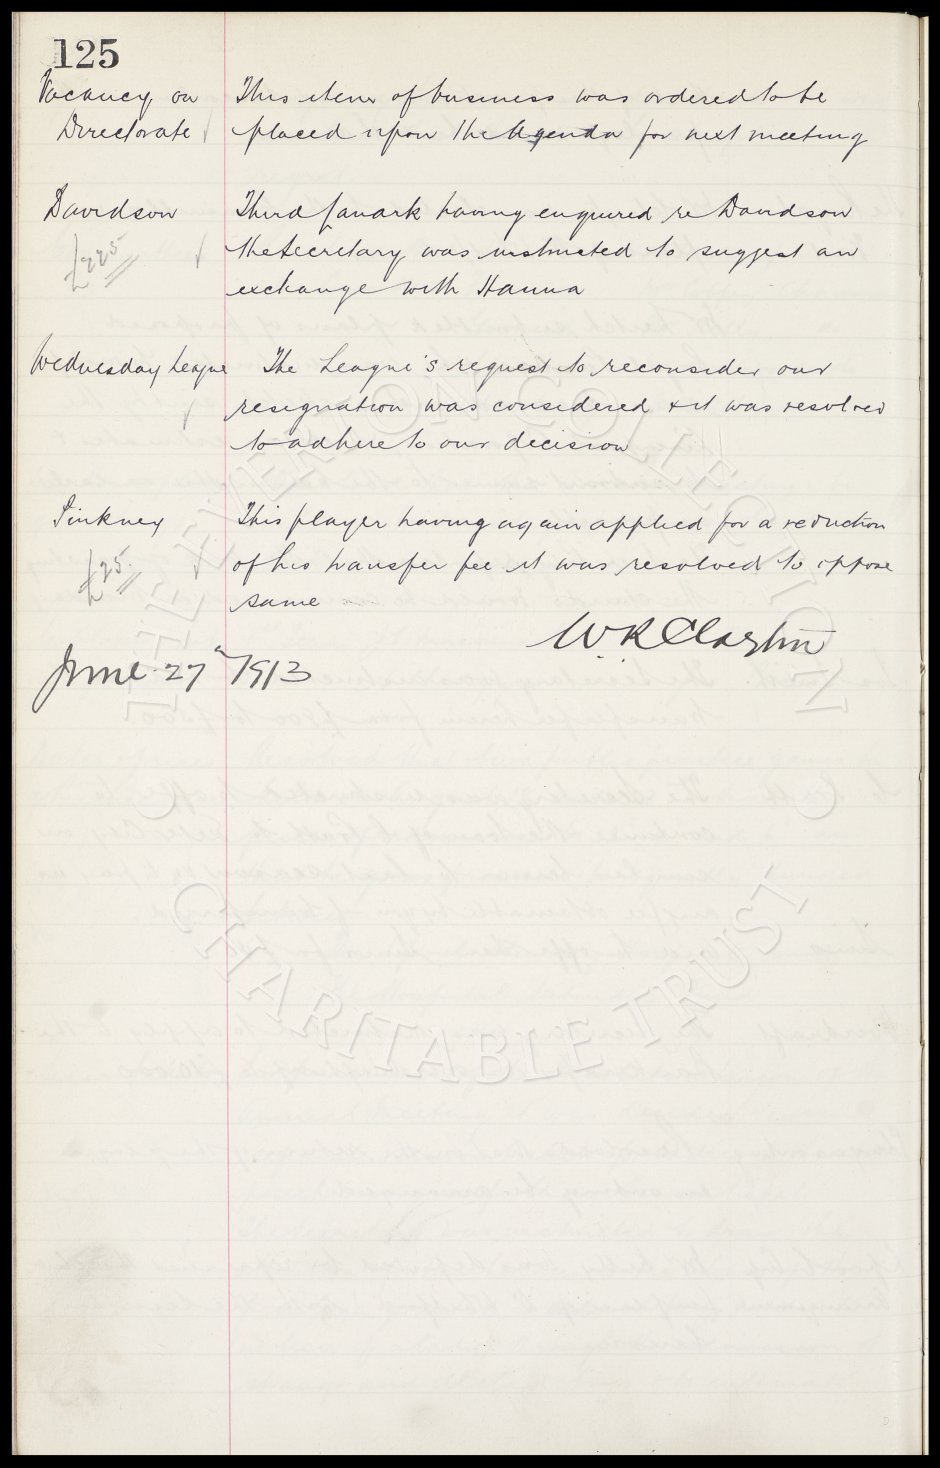 125
Vacancy on Directorate
This item of business was ordered to be
placed upon the Agenda for next meeting
Davidson
£225
Third Lanark having enquired re Davidson
the Secretary was instructed to suggest an
exchange with Hanna
Wednesday League
The League's request to reconsider our
resignation was considered & it was resolved
to adhere to our decision
Pinkney
£25
This player having again applied for a reduction
of his transfer fee it was resolved to oppose
same
W. R. Clayton
June 27th 1913
THE EVERTON COLLECTION
CHARITABLE TRUST